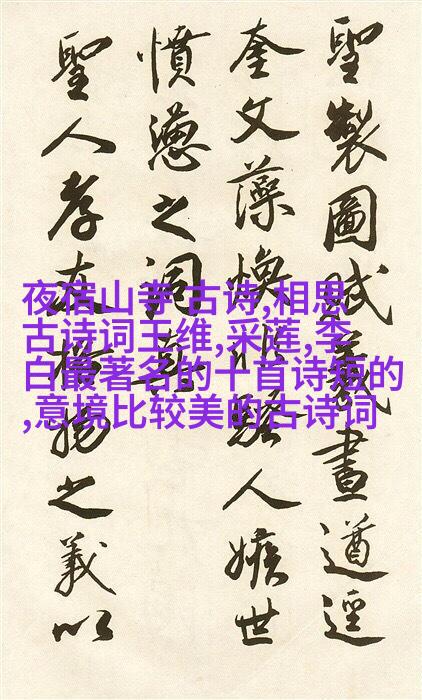 聖製圖賦義畫遒逕
奎文藻煥非騷人嫉世
憤懣之詞
聖人孝友揚之義以
夜宿山寺 古诗,相思
古诗词王维,采莲,李
白最著名的十首诗短的
,意境比较美的古诗词